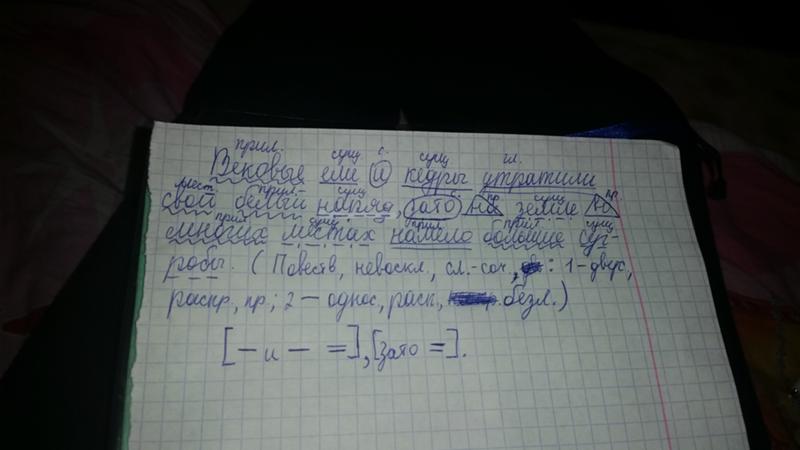 прил. сущ с. сущ гл.
Вековые ели и кедры утратили
мест. прил. сущ пр. сущ пр.
свой белый наряд, зато на земле во
прил сущ прил сущ
многих местах намело большие суг-
робы. (Повеств, невоскл, сл.-соч, : 1-двус,
распр, пр; 2 – однос, расп, безл.)
[– и – =], [зато =].